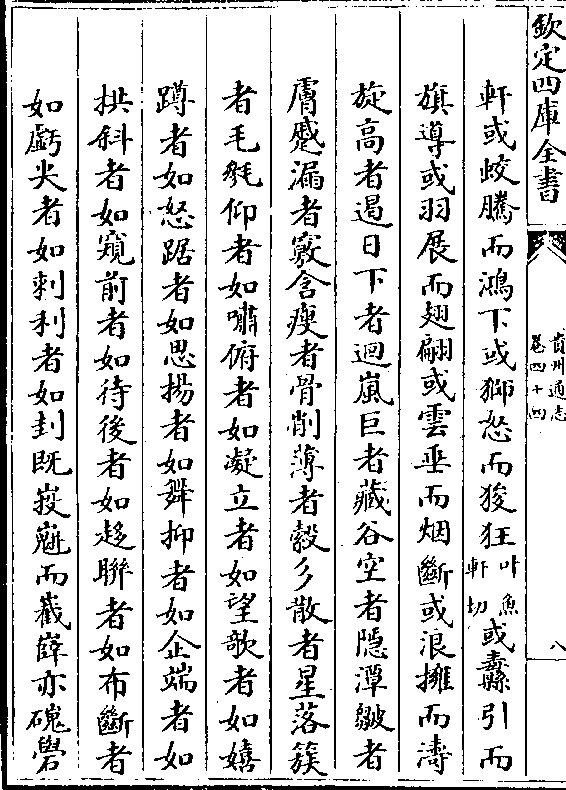 欽定四庫全書
貴州通志
卷四十四
八
軒或蛟騰而鴻下或獅怒而狻狂叶魚軒切或纛引而
旗導或羽展而翅翩或雲垂而烟斷或浪擁而濤
旋高者遏日下者迴嵐巨者藏谷空者隱潭皺者
膚蹙漏者竅含瘦者骨削薄者縠多散者星落簇
者毛毿仰者如嘯俯者如凝立者如望欹者如嬉
蹲者如怒踞者如思揚者如舞抑者如企端者如
拱斜者如窺前者如待後者如趍聯者如布斷者
如虧尖者如刺利者如刲既嶔
而嶻嶭亦磈礐